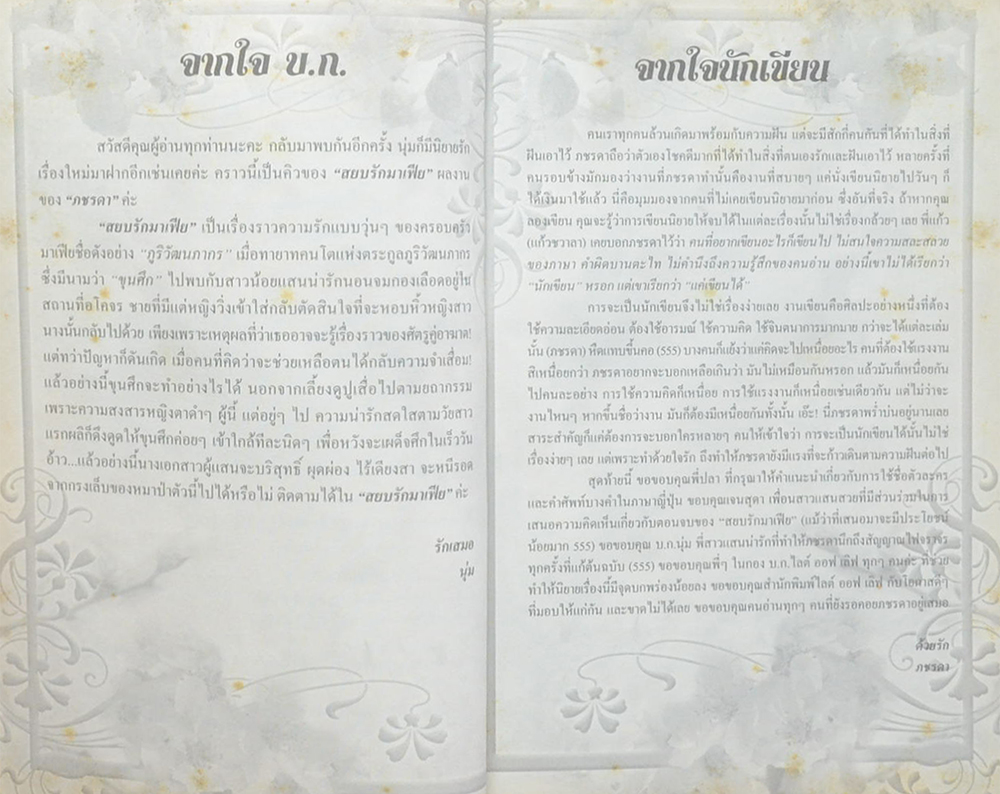 จากใจ บ.ก.
สวัสดีคุณผู้อ่านทุกท่านนะคะ กลับมาพบกันอีกครั้ง นุ่มก็มีนิยายรัก
เรื่องใหม่มาฝากอีกเช่นเคยค่ะ คราวนี้เป็นคิวของ “สยบรักมาเฟีย” ผลงาน
ของ “ภชรดา” ค่ะ
“สยบรักมาเฟีย” เป็นเรื่องราวความรักแบบวุ่นๆ ของครอบครัว
มาเฟียชื่อดังอย่าง “ภูริวัฒนภากร” เมื่อทายาทคนโตแห่งตระกูลภูริวัฒนภากร
ซึ่งมีนามว่า “ขุนศึก” ไปพบกับสาวน้อยแสนน่ารักนอนจมกองเลือดอยู่ใน
สถานที่อโคจร ชายที่มีแต่หญิงวิ่งเข้าใส่กลับตัดสินใจที่จะหอบหิ้วหญิงสาว
นางนั้นกลับไปด้วย เพียงเพราะเหตุผลที่ว่าเธออาจจะรู้เรื่องราวของศัตรูคู่อาฆาต!
แต่ทว่าปัญหาก็ดันเกิด เมื่อคนที่คิดว่าจะช่วยเหลือตนได้กลับความจำเสื่อม!
แล้วอย่างนี้ขุนศึกจะทำอย่างไรได้ นอกจากเลี้ยงดูปูเสื่อไปตามยถากรรม
เพราะความสงสารหญิงตาดำๆ ผู้นี้ แต่อยู่ๆ ไป ความน่ารักสดใสตามวัยสาว
แรกผลิก็ดึงดูดให้ขุนศึกค่อยๆ เข้าใกล้ทีละนิดๆ เพื่อหวังจะเผด็จศึกในเร็ววัน
อ้าว...แล้วอย่างนี้นางเอกสาวผู้แสนจะบริสุทธิ์ ผุดผ่อง ไร้เดียงสา จะหนีรอด
จากกรงเล็บของหมาป่าตัวนี้ไปได้หรือไม่ ติดตามได้ใน “สยบรักมาเฟีย” ค่ะ
รักเสมอ
นุ่ม
จากใจนักเขียน
คนเราทุกคนล้วนเกิดมาพร้อมกับความฝัน แต่จะมีสักกี่คนกันที่ได้ทำในสิ่งที่
ฝันเอาไว้ ภชรดาถือว่าตัวเองโชคดีมากที่ได้ทำในสิ่งที่ตนเองรักและฝันเอาไว้ หลายครั้งที่
คนรอบข้างมักมองว่างานที่ภชรดาทำนั้นคืองานที่สบายๆ แค่นั่งเขียนนิยายไปวันๆ ก็
ได้เงินมาใช้แล้ว นี่คือมุมมองจากคนที่ไม่เคยเขียนนิยายมาก่อน ซึ่งอันที่จริง ถ้าหากคุณ
ลองเขียน คุณจะรู้ว่าการเขียนนิยายให้จบได้ในแต่ละเรื่องนั้นไม่ใช่เรื่องกล้วยๆ เลย พี่แก้ว
(แก้วชวาลา) เคยบอกภชรดาไว้ว่า คนที่อยากเขียนอะไรก็เขียนไป ไม่สนใจความสละสลวย
ของภาษา คำผิดบานตะไท ไม่คำนึงถึงความรู้สึกของคนอ่าน อย่างนี้เขาไม่ได้เรียกว่า
“นักเขียน” หรอก แต่เขาเรียกว่า “แค่เขียนได้”
การจะเป็นนักเขียนจึงไม่ใช่เรื่องง่ายเลย งานเขียนคือศิลปะอย่างหนึ่งที่ต้อง
ใช้ความละเอียดอ่อน ต้องใช้อารมณ์ ใช้ความคิด ใช้จินตนาการมากมาย กว่าจะได้แต่ละเล่ม
นั้น (ภชรดา) หืดแทบขึ้นคอ (555) บางคนก็แย้งว่าแค่คิดจะไปเหนื่อยอะไร คนที่ต้องใช้แรงงาน
สิเหนื่อยกว่า ภชรดาอยากจะบอกเหลือเกินว่า มันไม่เหมือนกันหรอก แล้วมันก็เหนื่อยกัน
ไปคนละอย่าง การใช้ความคิดก็เหนื่อย การใช้แรงงานก็เหนื่อยเช่นเดียวกัน แต่ไม่ว่าจะ
งานไหนๆ หากขึ้นชื่อว่างาน มันก็ต้องมีเหนื่อยกันทั้งนั้น เอ๊ะ! นี่ภชรดาพร่ำบ่นอยู่นานเลย
สาระสำคัญก็แค่ต้องการจะบอกใครหลายๆ คนให้เข้าใจว่า การจะเป็นนักเขียนได้นั้นไม่ใช่
เรื่องง่ายๆ เลย แต่เพราะทำด้วยใจรัก ถึงทำให้ภชรดายังมีแรงที่จะก้าวเดินตามความฝันต่อไป
สุดท้ายนี้ ขอขอบคุณพี่ปลา ที่กรุณาให้คำแนะนำเกี่ยวกับการใช้ชื่อตัวละคร
และคำศัพท์บางคำในภาษาญี่ปุ่น ขอบคุณเจนสุดา เพื่อนสาวแสนสวยที่มีส่วนร่วมในการ
เสนอความคิดเห็นเกี่ยวกับตอนจบของ “สยบรักมาเฟีย” (แม้ว่าที่เสนอมาจะมีประโยชน์
น้อยมาก 555) ขอขอบคุณ บ.ก.นุ่ม พี่สาวแสนน่ารักที่ทำให้ภชรดานึกถึงสัญญาณไฟจราจร
ทุกครั้งที่แก้ต้นฉบับ (555) ขอขอบคุณพี่ๆ ในกอง บ.ก.ไลต์ ออฟ เลิฟ ทุกๆ คนค่ะ ที่ช่วย
ทำให้นิยายเรื่องนี้มีจุดบกพร่องน้อยลง ขอขอบคุณสำนักพิมพ์ไลต์ ออฟ เลิฟ กับโอกาสดีๆ
ที่มอบให้แก่กัน และขาดไม่ได้เลย ขอขอบคุณคนอ่านทุกๆ คนที่ยังรอคอยภชรดาอยู่เสมอ
ด้วยรัก
ภชรดา